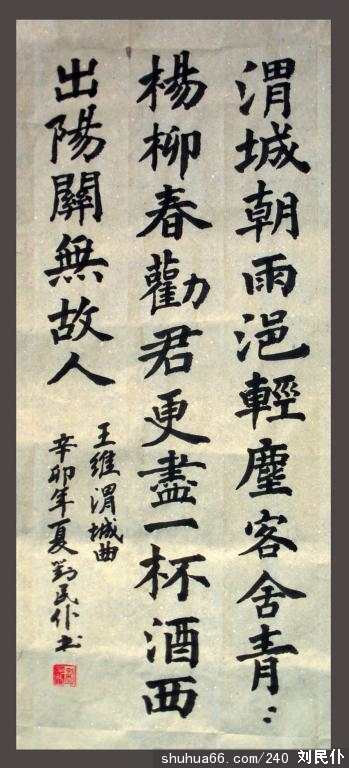 渭城朝雨浥輕塵客舍青〻
楊柳春勸君更盡一杯酒西
出陽關無故人
王維渭城曲
辛卯年夏劉民仆书
shuhua66.com/240 刘民仆